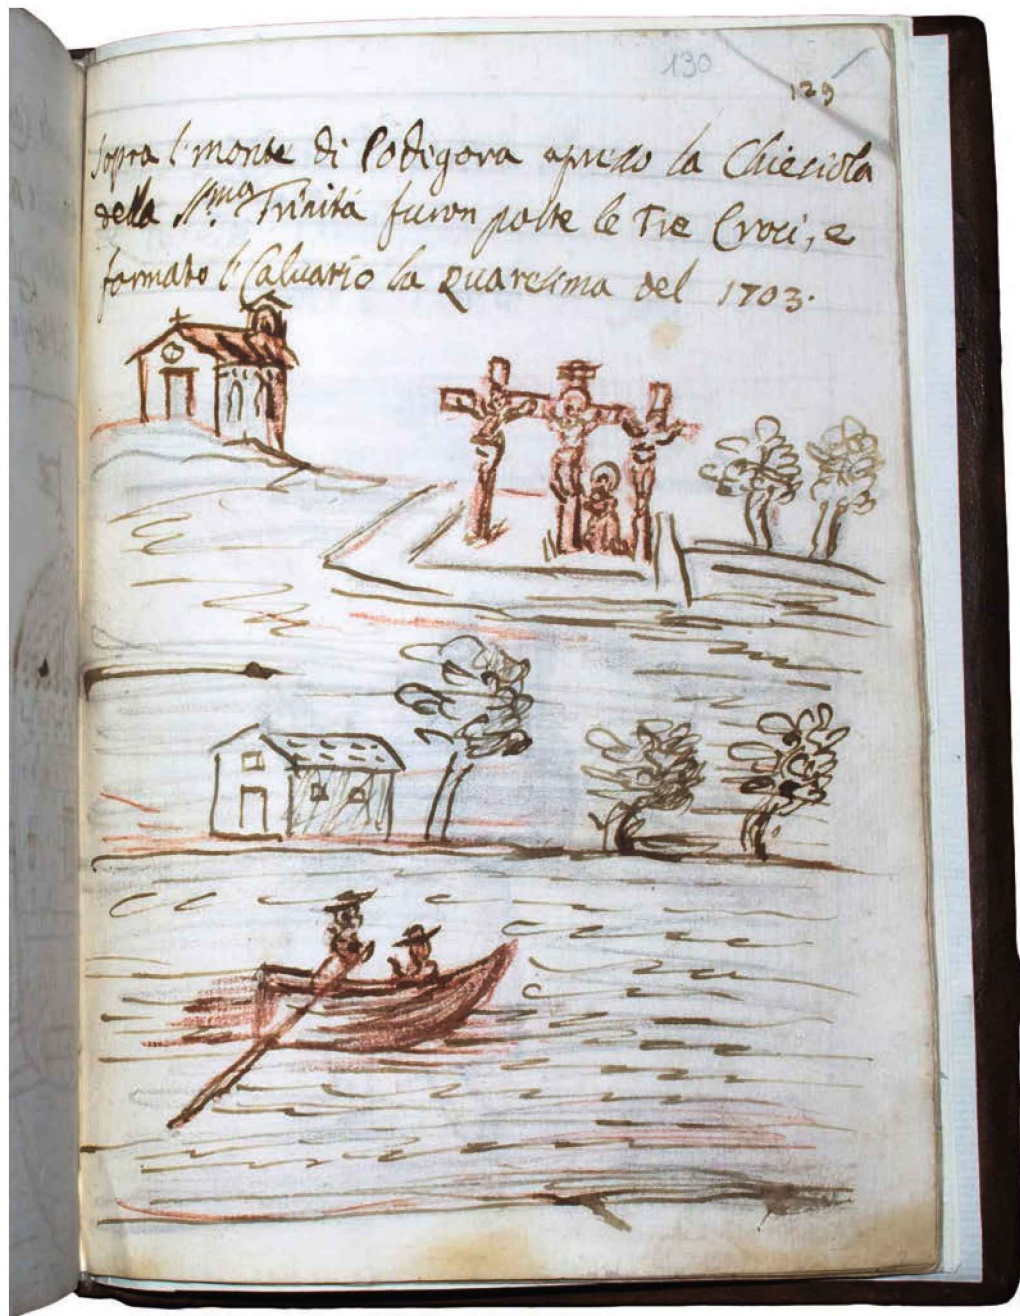 130
129
Sopra l'monte di Podigora apresso la Chiesiola
della SS.ma Trinità furon poste le Tre Croci, e
formato l'Calvario la Quaresima del 1703.